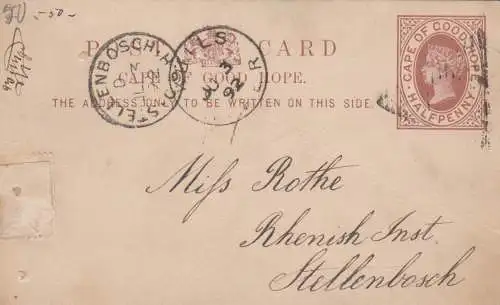 -50-
POST CARD
CAPE OF GOOD HOPE.
THE ADDRESS ONLY TO BE WRITTEN ON THIS SIDE.
CAPE OF GOOD HOPE
HALFPENNY
STELLENBOSCH
JU 3
92
Miſs Rothe
Rhenish Inst.
Stellenbosch